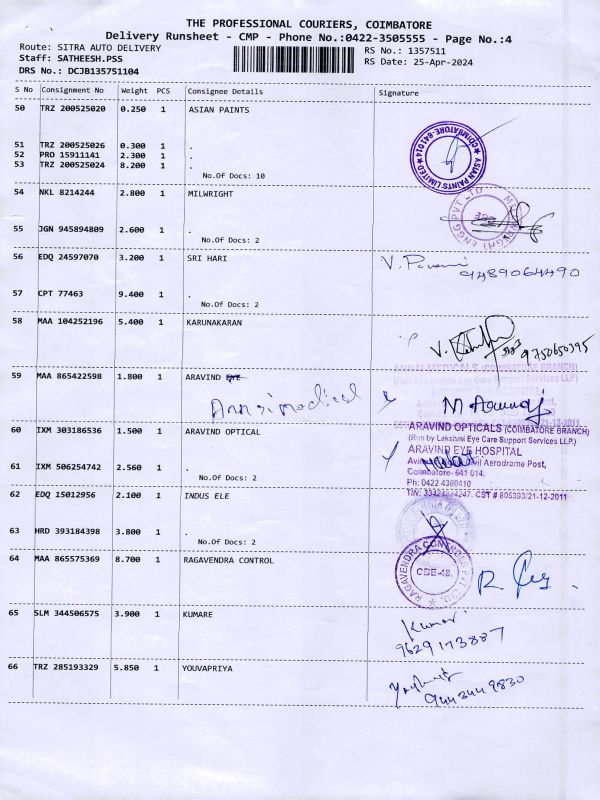 THE PROFESSIONAL COURIERS, COIMBATORE
Delivery Runsheet - CMP - Phone No.:0422-3505555 - Page No.:4
Route: SITRA AUTO DELIVERY RS No.: 1357511
Staff: SATHEESH.PSS RS Date: 25-Apr-2024
DRS No.: DCJB135751104
S No Consignment No Weight PCS Consignee Details Signature
50 TRZ 200525020 0.250 1 ASIAN PAINTS
51 TRZ 200525026 0.300 1 .
52 PRO 15911141 2.300 1 .
53 TRZ 200525024 8.200 1 .
No.Of Docs: 10
ASIAN PAINTS LIMITED
COIMBATORE-641014
54 NKL 8214244 2.800 1 MILWRIGHT
55 JGN 945894809 2.600 1 .
No.Of Docs: 2
ENGG PVT LTD
56 EDQ 24597070 3.200 1 SRI HARI
9489064490
57 CPT 77463 9.400 1 .
No.Of Docs: 2
58 MAA 104252196 5.400 1 KARUNAKARAN
9750650395
59 MAA 865422598 1.800 1 ARAVIND EYE
60 IXM 303186536 1.500 1 ARAVIND OPTICAL
61 IXM 506254742 2.560 1 .
No.Of Docs: 2
ARAVIND OPTICALS (COIMBATORE BRANCH)
(Run by Lakshmi Eye Care Support Services LLP.)
ARAVIND EYE HOSPITAL
Aerodrome Post,
Coimbatore- 641 014.
Ph: 0422 4360410
CST # 805393/21-12-2011
62 EDQ 15012956 2.100 1 INDUS ELE
63 HRD 393184398 3.800 1 .
No.Of Docs: 2
64 MAA 865575369 8.700 1 RAGAVENDRA CONTROL
RAGAVENDRA
CBE-48.
65 SLM 344506575 3.900 1 KUMARE
Kumar
9629173887
66 TRZ 285193329 5.850 1 YOUVAPRIYA